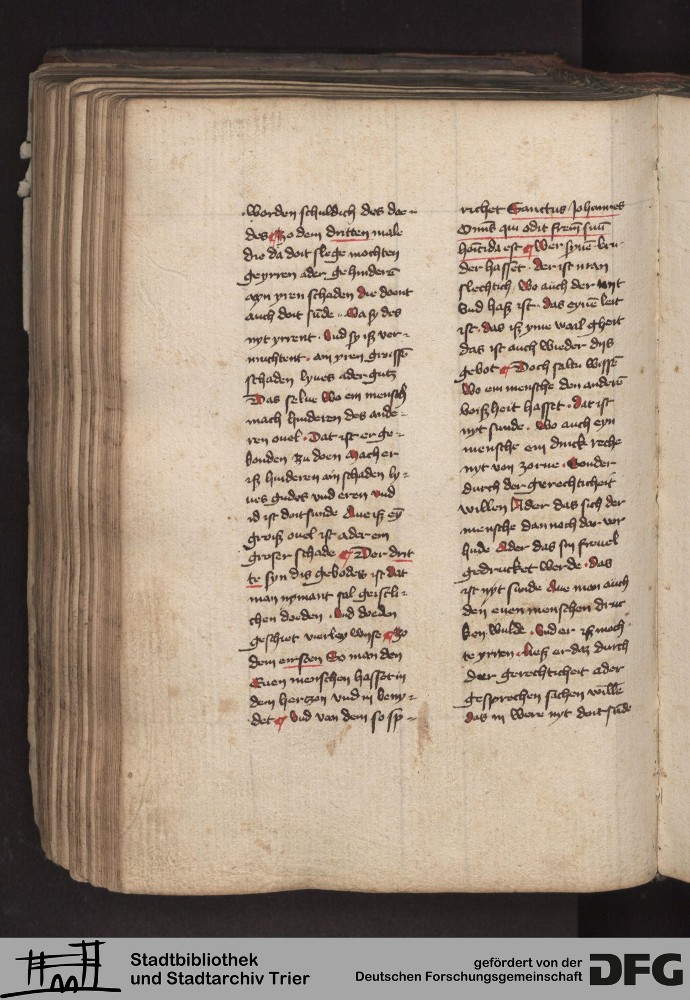 worden schuldich des doe-
des Zo dem dritten male
die da doit slege mochten
geyrren ader gehinderē
ayn yren schaden die doent
auch doit sūde. Wa sy des
nyt yrrent. Vnd sy iß ver-
muchtent. ain yren groissē
schaden lyues ader gutz
Das selue wo ein mensch
mach hinderen des ande-
ren ouel. Dat ist er ge-
bonden zu doen Mach er
iß hinderen ain schaden ly-
ues gudes vnd eren vnd
id ist doitsunde Aue iß eȳ
groiß ouel ist ader ein
groser schade Der drit
te syn dis gebodes ist dat
man nymant sal geistli-
chen doeden. Vnd doeden
geschiet vierley wyse Zo
dem eirsten So man den
Euen menschen hasset in
dem hertzen vnd in beny-
det Vnd van dem so sp-
richet Sanctus Johannes
Omīs qui odit frem̄ suū
hoīcida est Wer synē bru-
der hasset. der ist man
slechtich. Wo auch der nyt
vnd haß ist. das eynē leit
ist. das iß yme wail gheit
das ist auch wieder dis
gebot Doch saltu wissē
Wo ein mensche den anderē
boißheit hasset. dat ist
nyt sunde. Wo auch eyn
mensche ein dinck reche
nyt von zorne. Sonder
durch der gerechticheit
willen Ader das sich der
mensche dannoch dar vor
hude Ader das syn freuel
gedrucket werde. das
ist nyt sunde Aue man auch
den euenmenschen druc
ken wulde. Vnd er iß moch
te yrren. Ließ er daz durch
der gerechticheit ader
gesprochen sachen willē
das in were nyt doitsūde
Stadtbibliothek
und Stadtarchiv Trier
gefördert von der
Deutschen Forschungsgemeinschaft
DFG